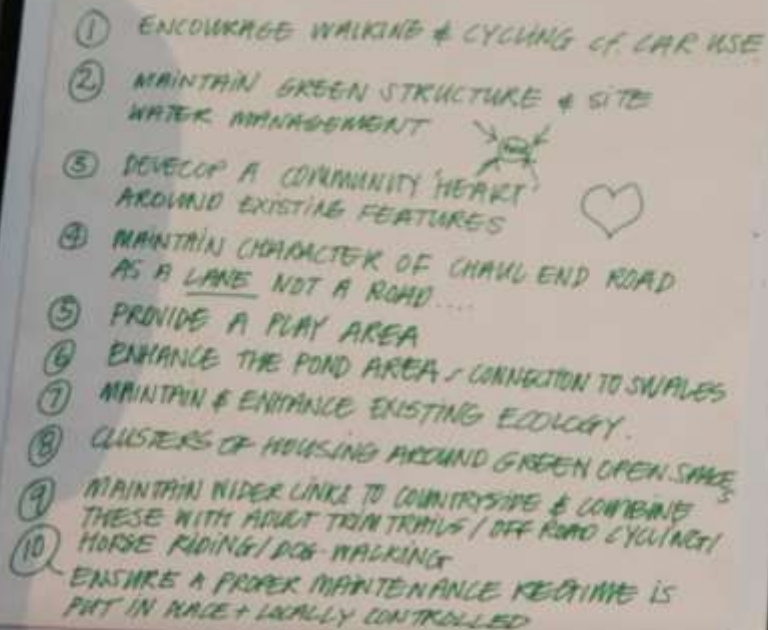 ① ENCOURAGE WALKING & CYCLING cf. CAR USE
② MAINTAIN GREEN STRUCTURE & SITE
WATER MANAGEMENT
③ DEVELOP A COMMUNITY 'HEART'
AROUND EXISTING FEATURES
④ MAINTAIN CHARACTER OF CHAUL END ROAD
AS A LANE NOT A ROAD....
⑤ PROVIDE A PLAY AREA
⑥ ENHANCE THE POND AREA / CONNECTION TO SWALES
⑦ MAINTAIN & ENHANCE EXISTING ECOLOGY.
⑧ CLUSTERS OF HOUSING AROUND GREEN OPEN SPACES
⑨ MAINTAIN WIDER LINKS TO COUNTRYSIDE & COMBINE
THESE WITH ADULT TRIM TRAILS / OFF ROAD CYCLING/
HORSE RIDING/DOG-WALKING
⑩ ENSURE A PROPER MAINTENANCE REGIME IS
PUT IN PLACE + LOCALLY CONTROLLED